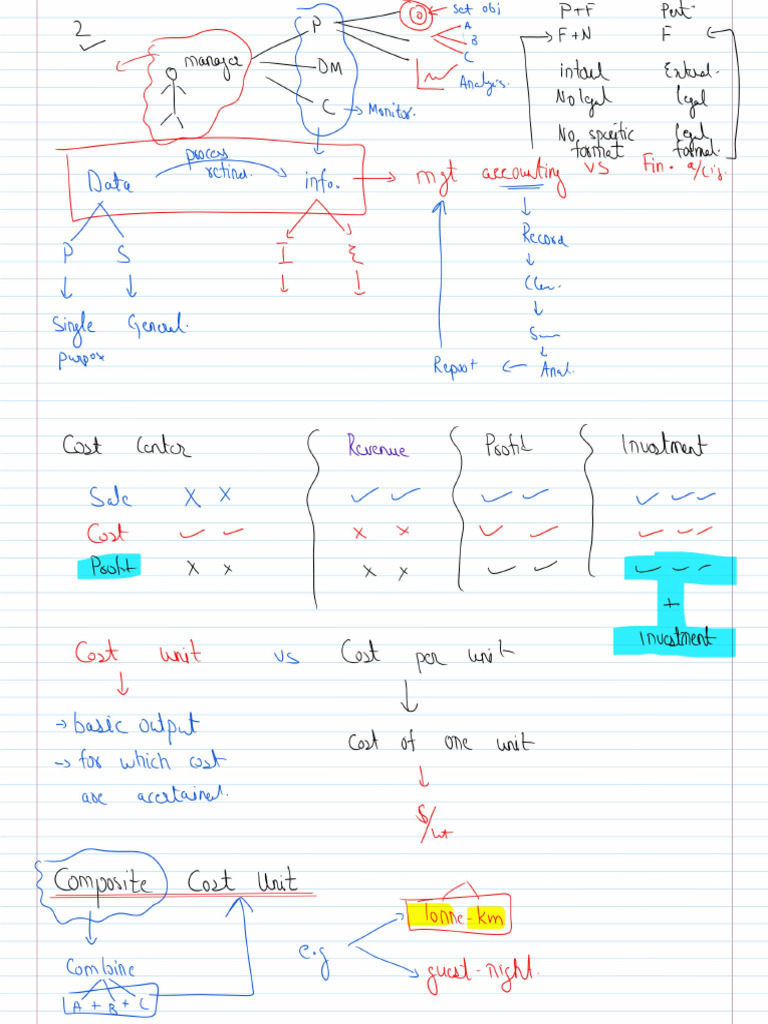 2
manager
P
DM
C → Monitor.
Set obj
A
B
C
Analysis.
P+F Past.
F+N F
No legal legal
No specific legal
format format.
Data
process
info. → mgt accounting vs Fin. a/cig.
P S
I E
Single General.
purpose
Record
Report ← Anal.
Cost Center Revenue Profit Investment
Sale X X ✓ ✓ ✓ ✓ ✓ ✓ ✓
Cost ✓ ✓ X X ✓ ✓ ✓ ✓ ✓
Profit X X X X ✓ ✓ ✓ ✓ ✓
+
Investment
Cost unit vs Cost per unit
→ basic output
→ for which cost
are acertained.
Cost of one unit
Composite Cost Unit
Combine
A + B + C
e.g
Tonne-km
guest-night.